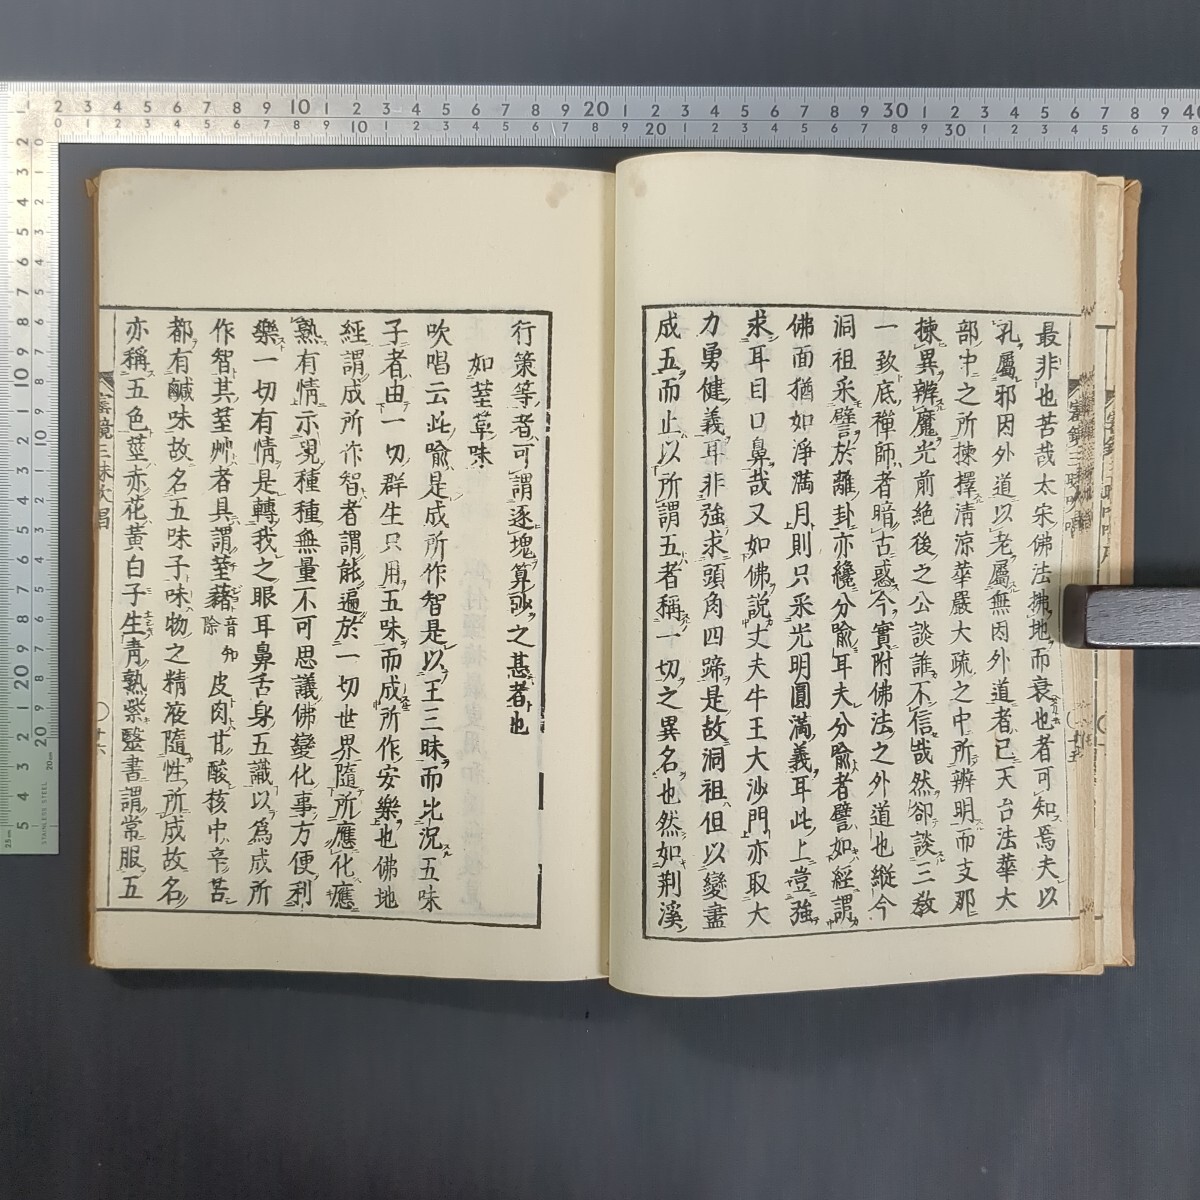 最非也苦哉太宋佛法拂地而衰也者可知焉夫以
孔屬邪因外道以老屬無因外道者已天台法華大
部中之所揀擇清涼華嚴大疏之中所辨明而支那
揀異辨魔光前絶後之公談誰不信哉然卻談三教
一致底禪師者暗古惑今實附佛法之外道也縱今
洞祖采譬於離卦亦纔分喩耳夫分喩者譬如經謂
佛面猶如淨滿月則只采光明圓滿義耳此上豈強
求耳目口鼻哉又如佛説丈夫牛王大沙門亦取大
力勇健義耳非強求頭角四蹄是故洞祖但以變盡
成五而止以所謂五者稱一切之異名也然如荆溪
行策等者可謂逐塊算沙之甚者也
如荎草味
吹唱云此喩是成所作智是以王三昧而比況五味
子者由一切群生只用五味而成所作安樂也佛地
經謂成所作智者謂能遍於一切世界隨所應化應
熟有情示現種種無量不可思議佛變化事方便利
樂一切有情是轉我之眼耳鼻舌身五識以爲成所
作智其荎艸者具謂荎蕏音知除皮肉甘酸核中辛苦
都有鹹味故名五味子味物之精液隨性所成故名
亦稱五色莖赤花黃白子生靑熟紫毉書謂常服五
寶鏡三昧吹唱
十六